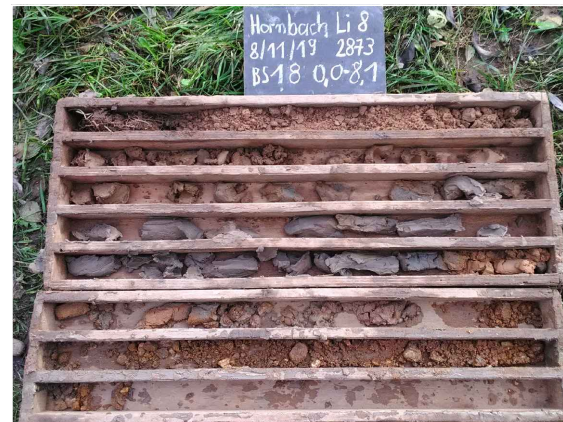 Hornbach Li 8
8/11/19 2873
BS18 0,0-8,1